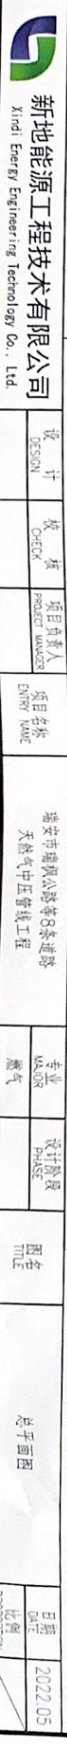 新地能源工程技术有限公司
Xindi Energy Engineering Technology Co., Ltd.
设 计
DESIGN
校 核
CHECK
项目负责人
PROJECT MANAGER
项目名称
ENTRY NAME
瑞安市瑞枫公路等8条道路
天然气中压管线工程
专业
MAJOR
燃气
设计阶段
PHASE
图名
TITLE
总平面图
日期
DATE
2022.05
比例